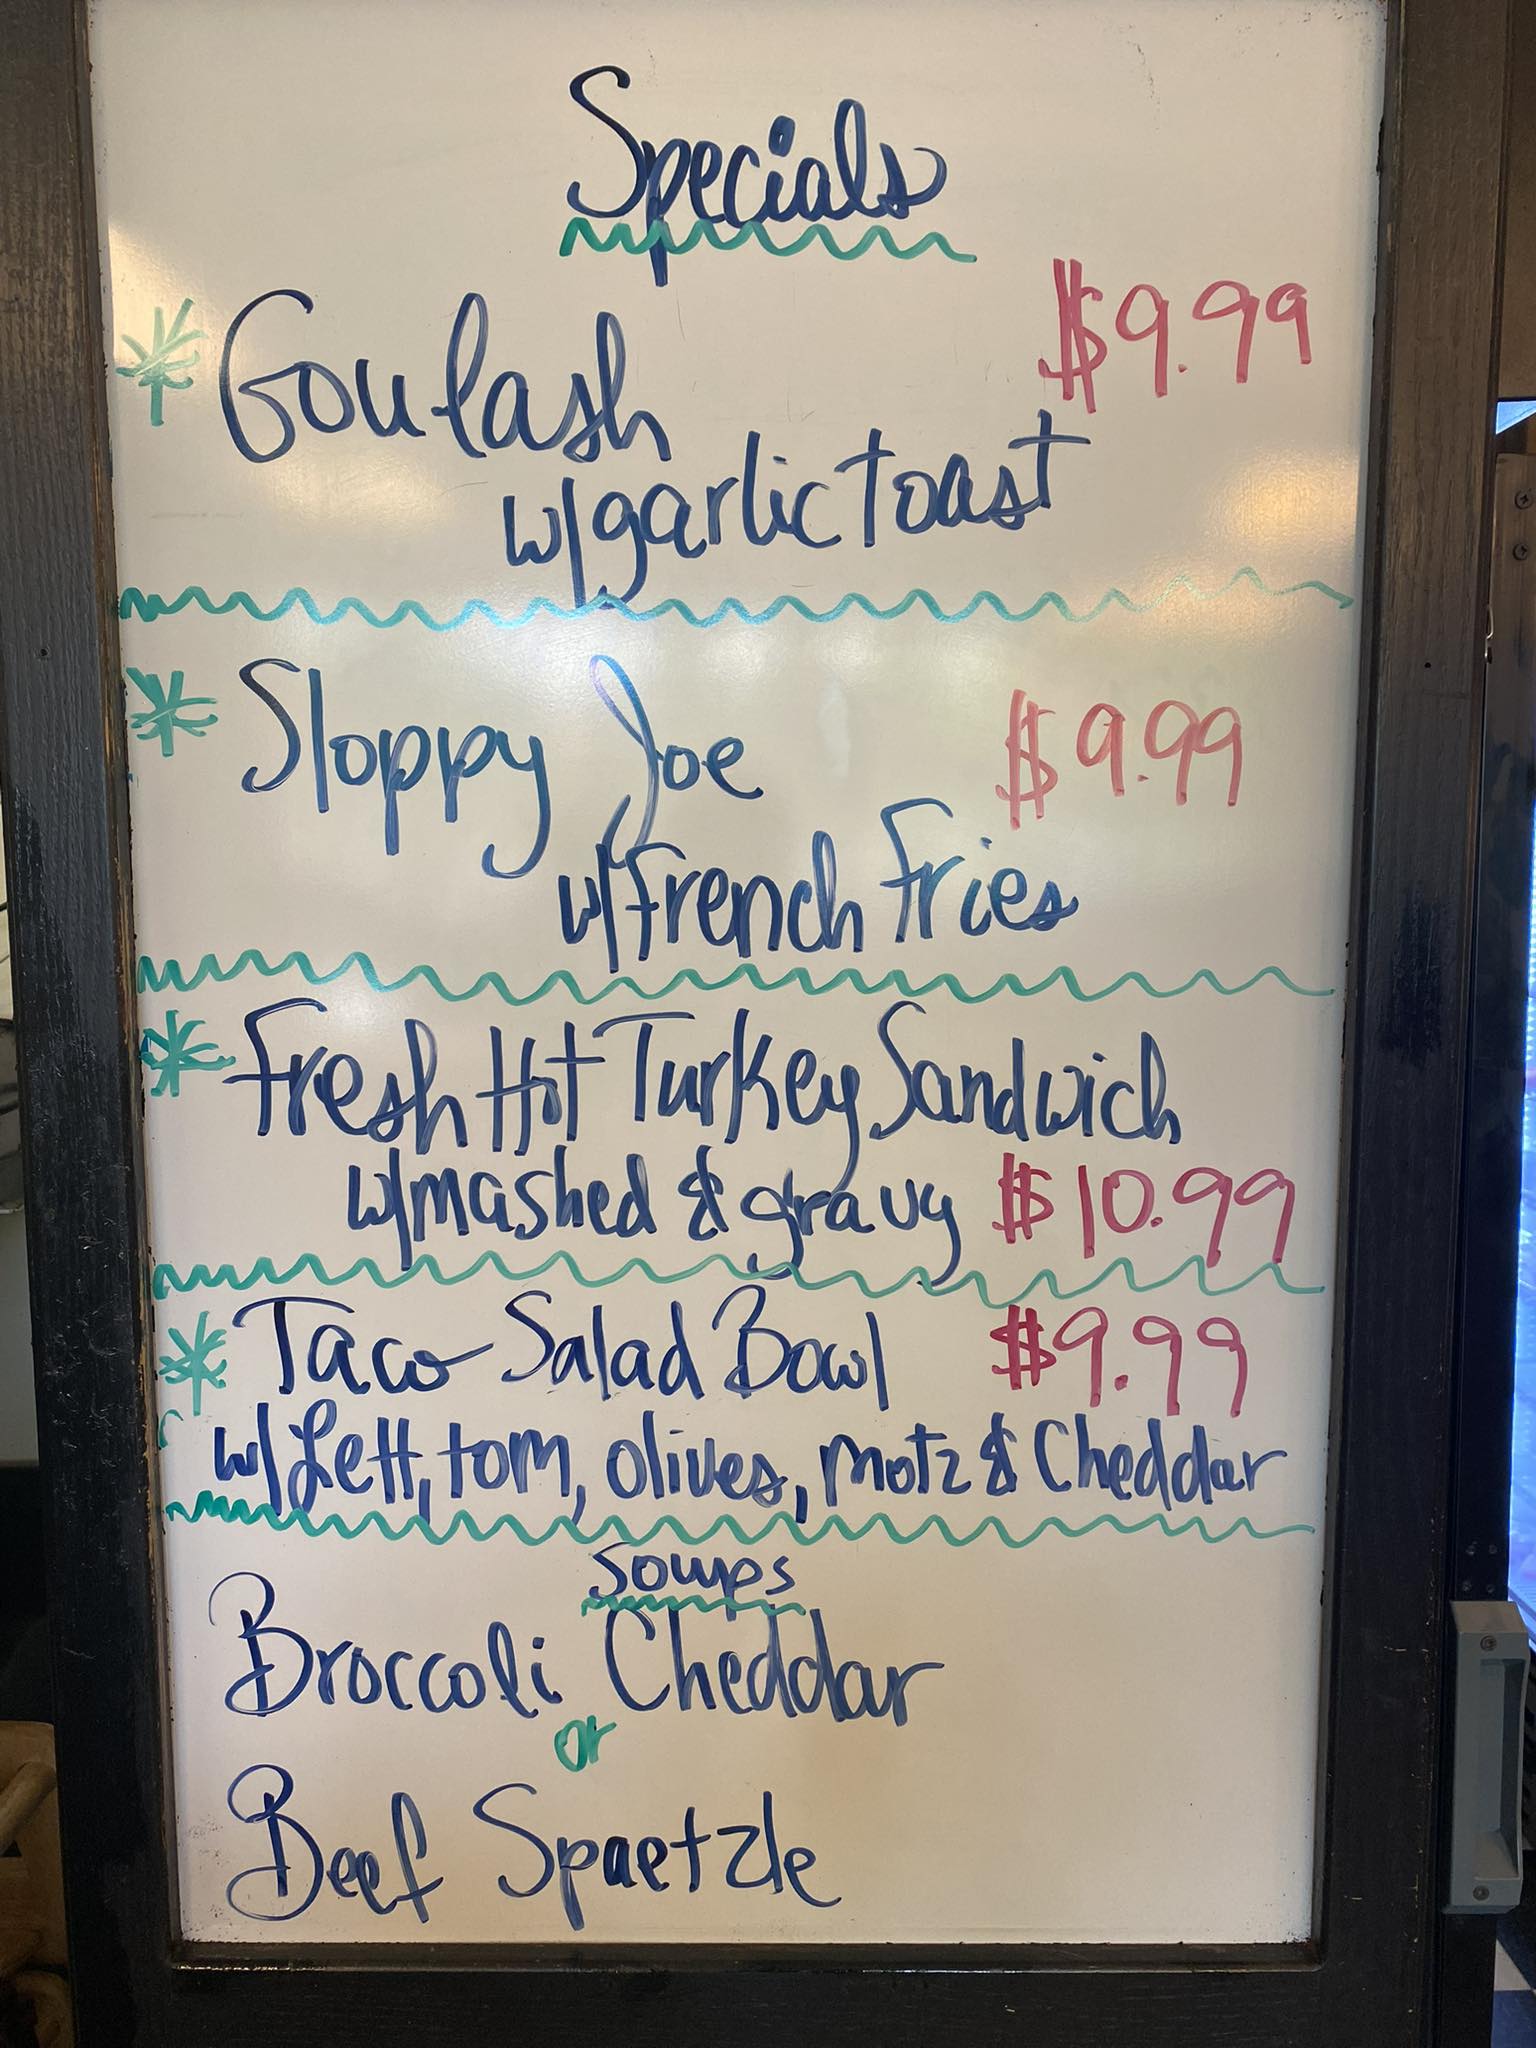 Specials
* Goulash $9.99
w/garlic toast
* Sloppy Joe $9.99
w/French Fries
* Fresh Hot Turkey Sandwich
w/mashed & gravy $10.99
* Taco Salad Bowl $9.99
w/Lett, tom, olives, motz & Cheddar
Soups
Broccoli Cheddar
or
Beef Spaetzle